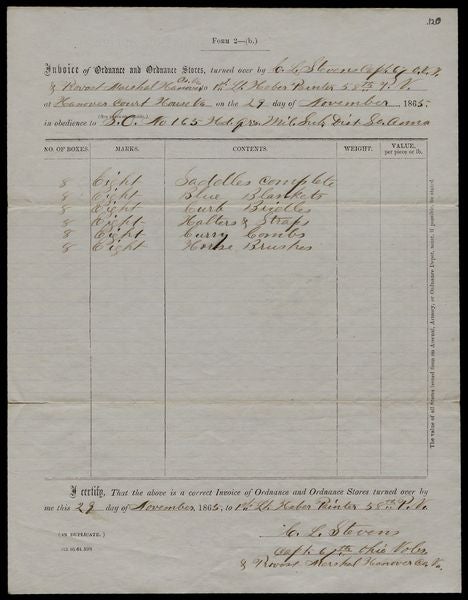 120
FORM 2—(b.)
Invoice of Ordnance and Ordnance Stores, turned over by C. L. Stevens Capt 67 O.V.I.
& Provost Marshal Hanover Co. Va to 1st Lt Heber Painter 58th P. V.
at Hanover Court House Va on the 29 day of November 1865,
in obedience to S.O. No 165 Hd. Qrs Mil. Sub Dist
NO. OF BOXES. MARKS. CONTENTS. WEIGHT. VALUE, per piece or lb.
8 Eight Saddles complete
8 Eight Blue Blankets
8 Eight Curb Bridles
8 Eight Halters & Straps
8 Eight Curry Combs
8 Eight Horse Brushes
The value of all Stores issued from an Arsenal, Armory, or Ordnance Depot, must, if possible, be stated.
I certify, That the above is a correct Invoice of Ordnance and Ordnance Stores turned over by
me this 29 day of November, 1865, to 1st Lt. Heber Painter 58th P. V.
(IN DUPLICATE.)
C. L. Stevens
Capt 67th Ohio Vols
& Provost Marshal Hanover Co, Va.